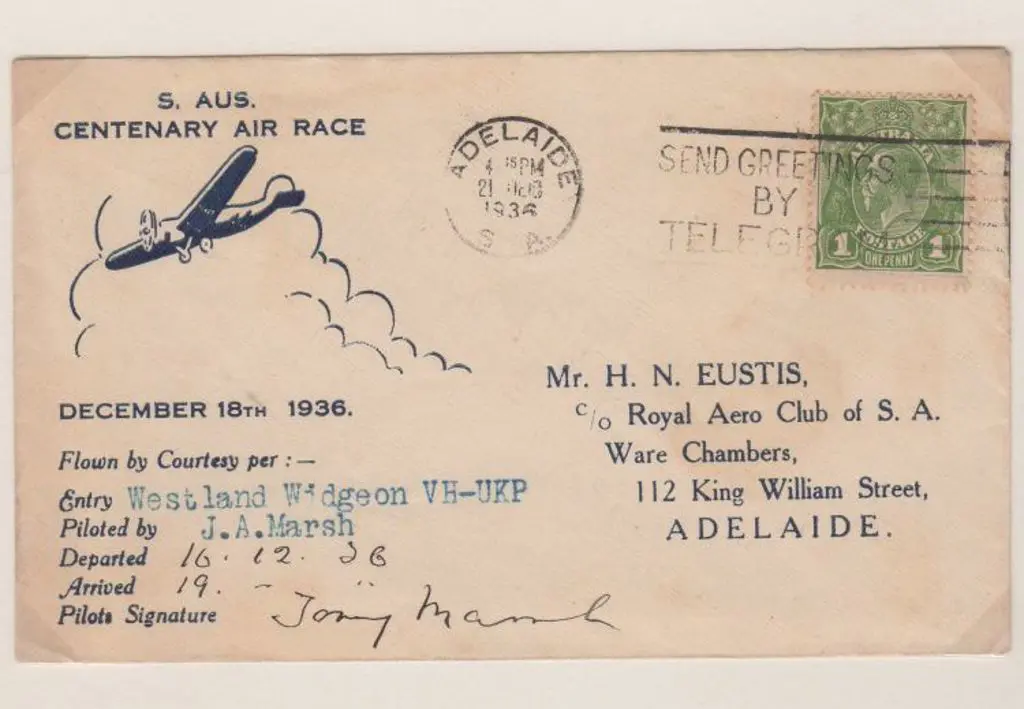 S. AUS.
CENTENARY AIR RACE
ADELAIDE
4 15 PM
21 DEC
1936
S. A.
SEND GREETINGS
BY
TELEGR
AUSTRALIA
POSTAGE
1 ONE PENNY 1
Mr. H. N. EUSTIS,
c/o Royal Aero Club of S. A.
Ware Chambers,
112 King William Street,
ADELAIDE.
DECEMBER 18TH 1936.
Flown by Courtesy per :—
Entry Westland Widgeon VH-UKP
Piloted by J.A.Marsh
Departed 16. 12. 36
Arrived 19. - "
Pilots Signature Tony Marsh